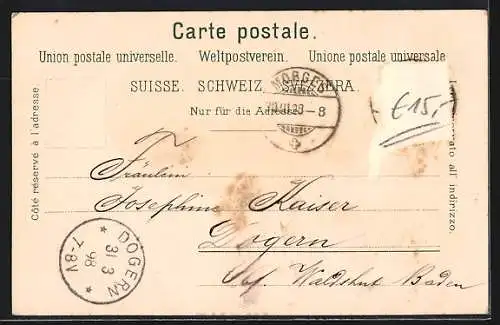 Carte postale.
Union postale universelle. Weltpostverein. Unione postale universale
SUISSE. SCHWEIZ. SVIZZERA.
Nur für die Adresse.
Côté réservé à l'adresse.
all' indirizzo.
HORGEN
III.98–8
€15,-
Fräulein
Josephine Kaiser
Dogern
Waldshut Baden
DOGERN
31 3
98
7-8V